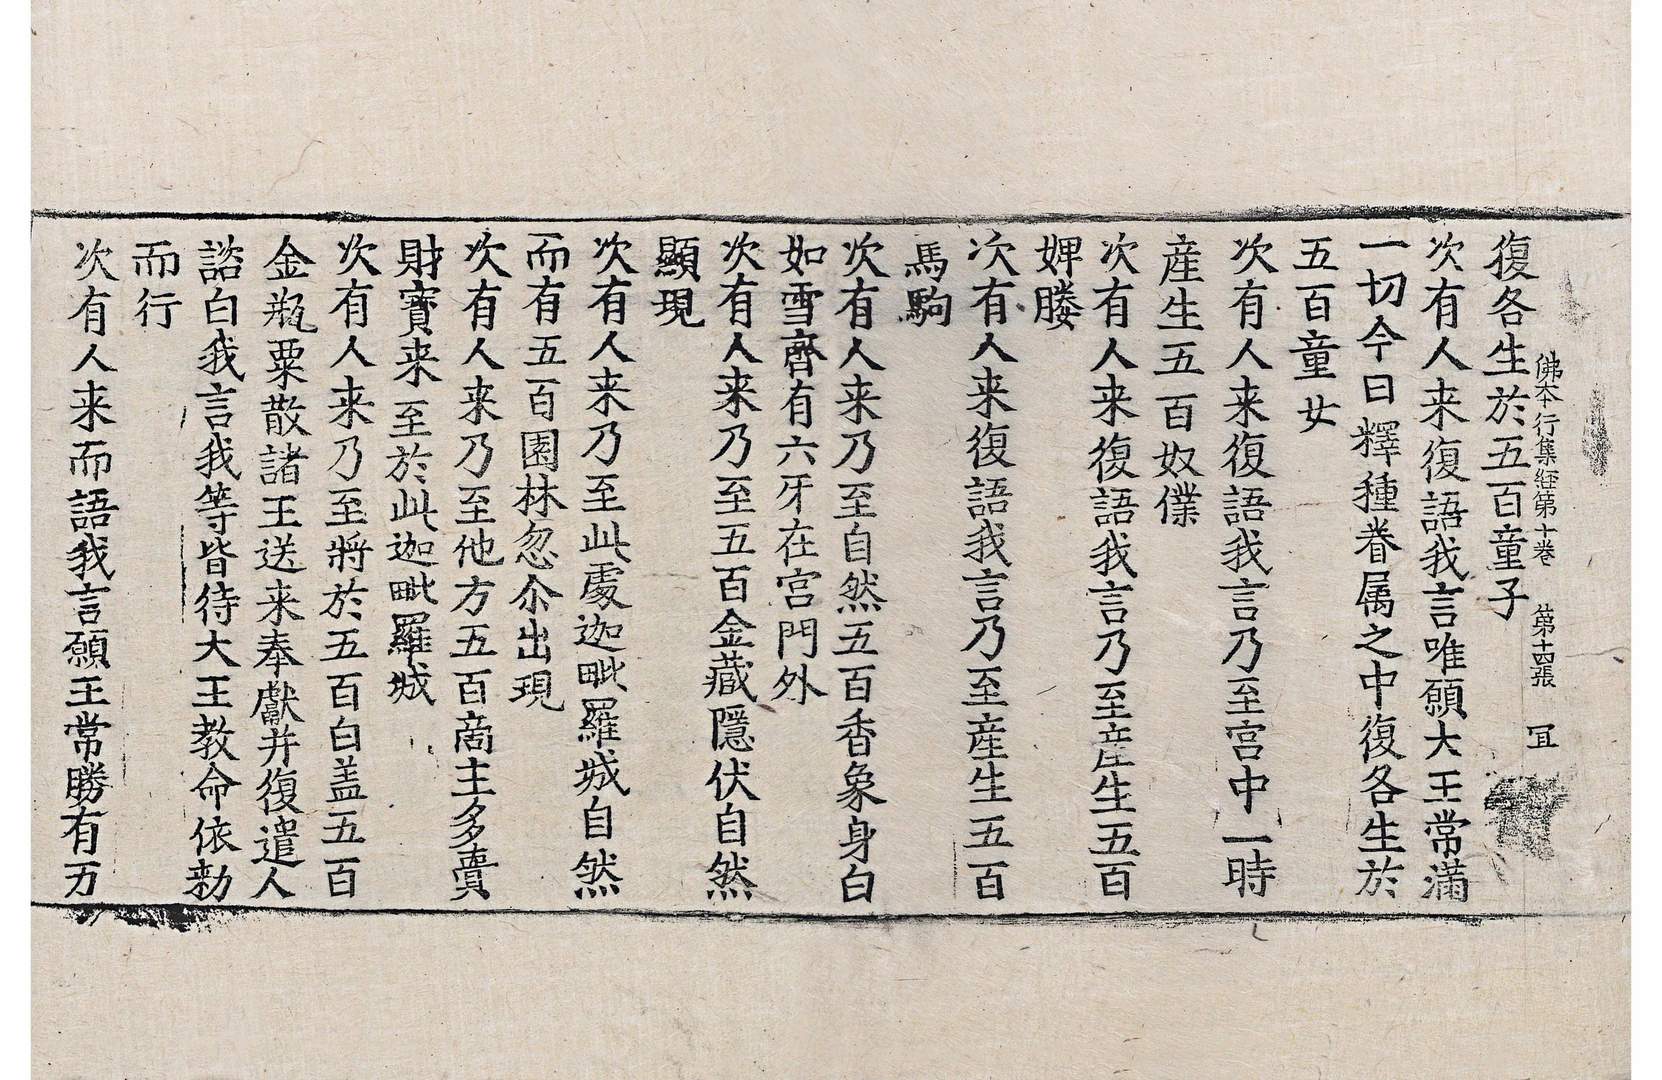 佛本行集経第十卷　第十四張　冝
復各生於五百童子
次有人来復語我言唯願大王常滿
一切今日釋種眷属之中復各生於
五百童女
次有人来復語我言乃至宫中一時
産生五百奴僕
次有人来復語我言乃至産生五百
婢媵
次有人来復語我言乃至産生五百
馬駒
次有人来乃至自然五百香象身白
如雪齊有六牙在宫門外
次有人来乃至五百金藏隱伏自然
顯現
次有人来乃至此處迦毗羅城自然
而有五百園林忽尒出現
次有人来乃至他方五百商主多賷
財寳来至於此迦毗羅城
次有人来乃至將於五百白盖五百
金瓶粟散諸王送来奉獻并復遣人
諮白我言我等皆待大王教命依勑
而行
次有人来而語我言願王常勝有万